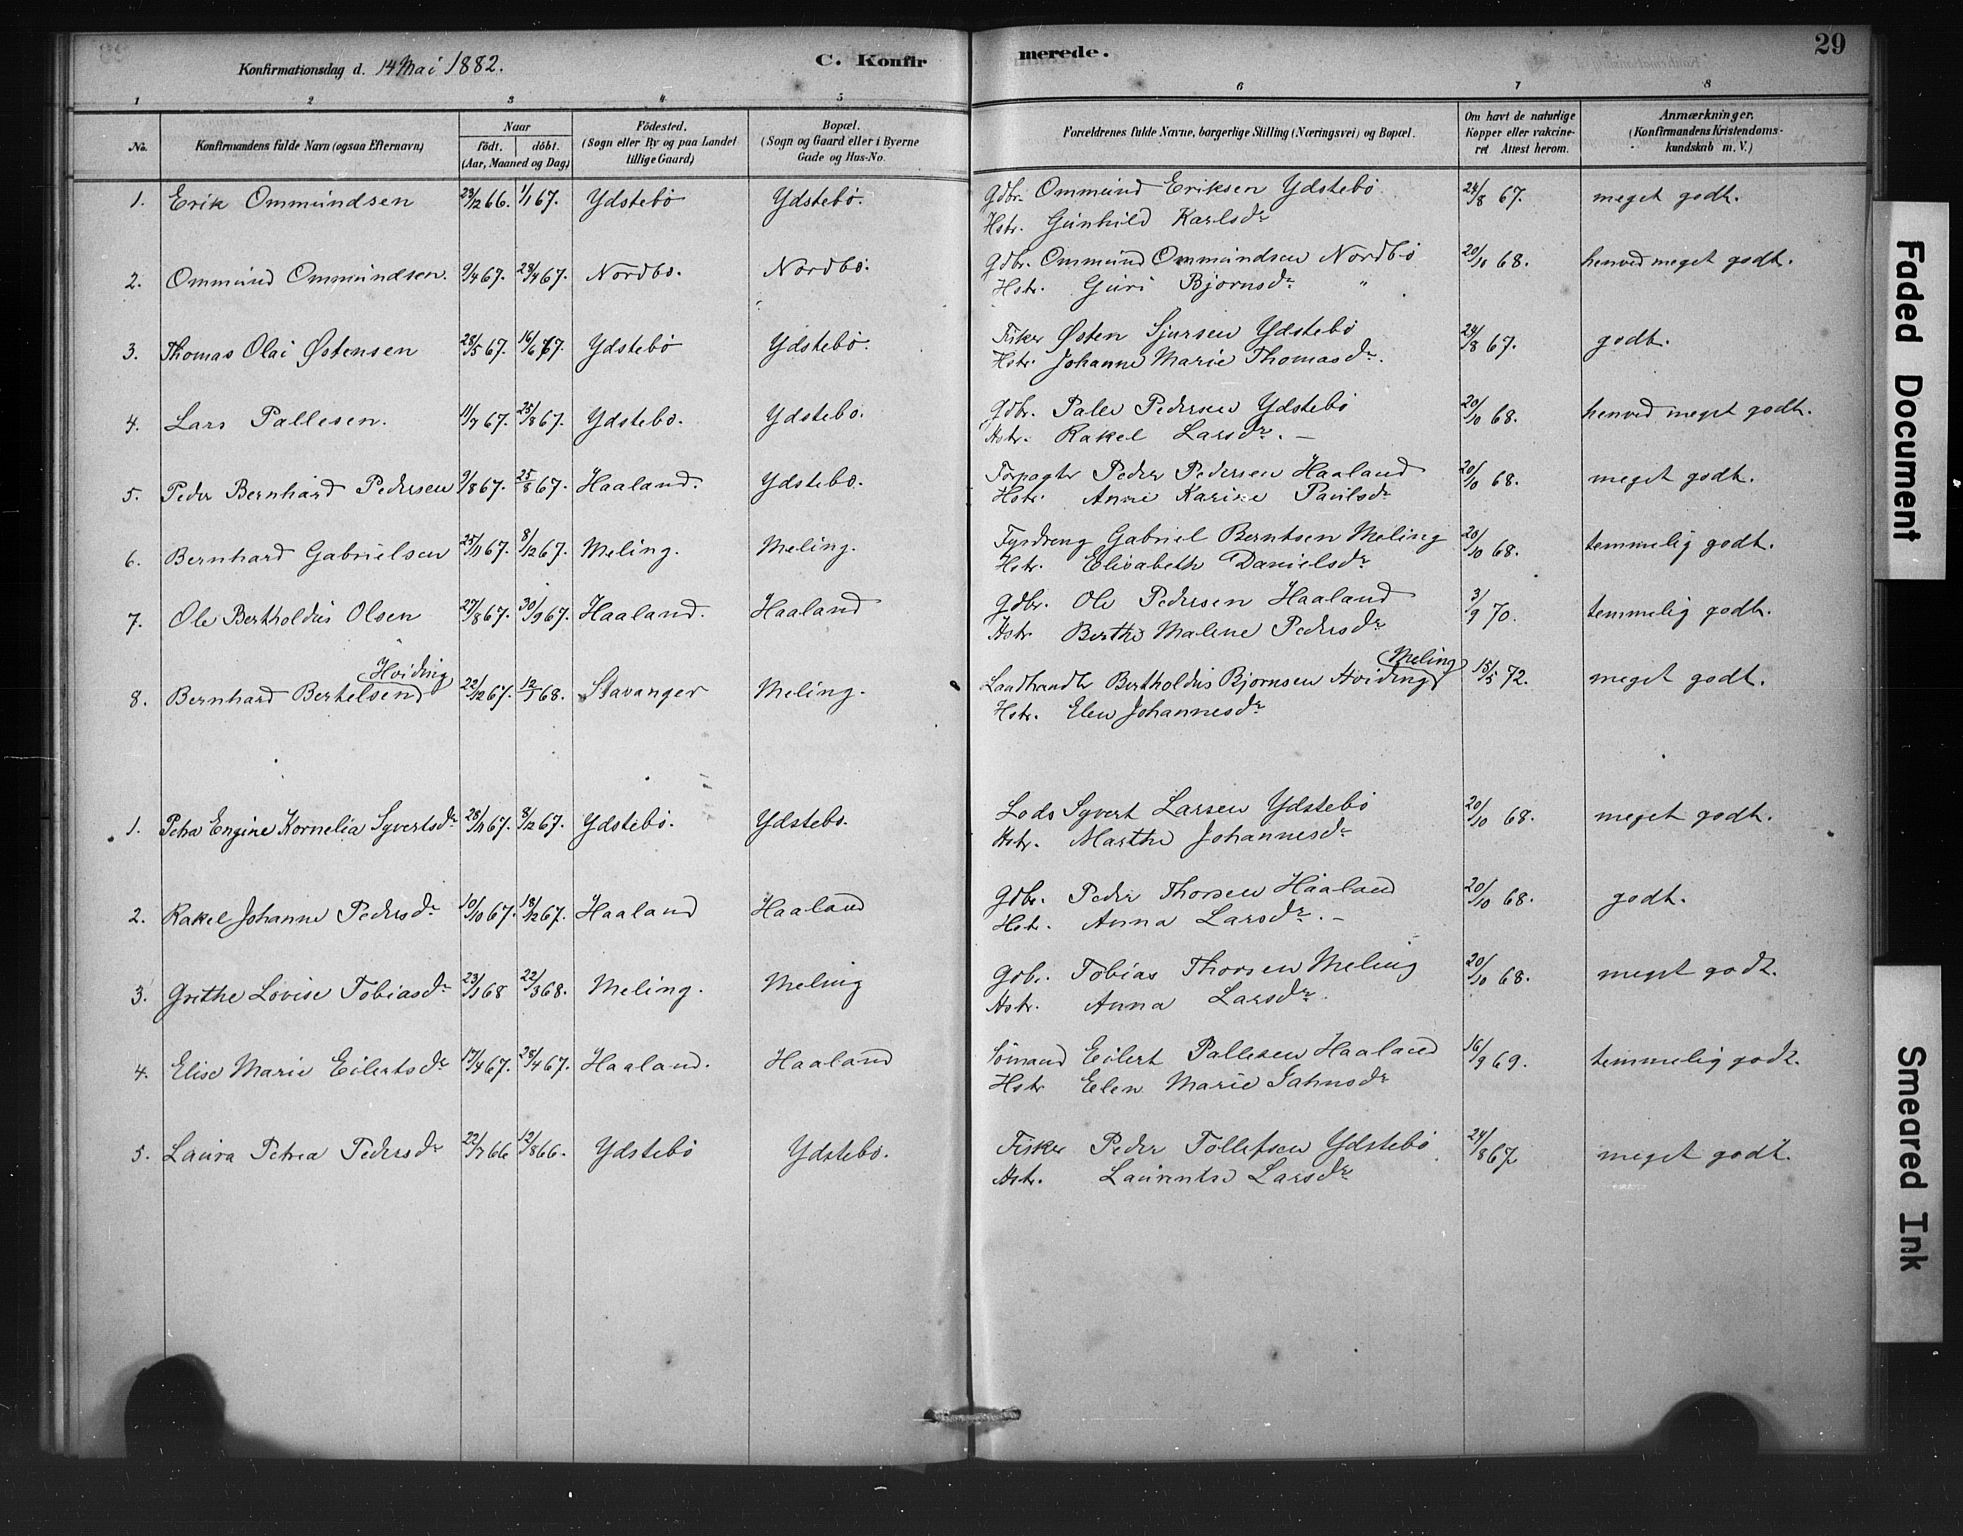 Konfirmationsdag d. 14 Mai 1882. C. Konfirmerede. 29
1 2 3 4 5 6 7 8
No. Konfirmandens fulde Navn (ogsaa Efternavn) Naar født. døbt. (Aar, Maaned og Dag) Födested. (Sogn eller By og paa Landet tillige Gaard) Bopæl. (Sogn og Gaard eller i Byerne Gade og Hus-No. Forældrenes fulde Navne, borgerlige Stilling (Næringsvei) og Bopæl. Om havt de naturlige Kopper eller vakcineret Attest herom. Anmærkninger. (Konfirmandens Kristendomskundskab m. V.)
1. Erik Ommundsen 23/12 66. 1/1 67. Ydstebö Ydstebö. Gdbr. Ommund Eriksen Ydstebö 24/8 67. meget godt.
Hstr. Gunhild Karlsdr
2. Ommund Ommundsen. 9/4 67. 28/4 67. Nordbö. Nordbö. Gdbr. Ommund Ommundsen Nordbö 20/10 68. henved meget godt.
Hstr. Guri Bjørnsdr "
3. Thomas Olai Østensen 28/5 67. 16/6 67. Ydstebö Ydstebö. Fisker Østen Sjursen Ydstebö 24/8 67. godt.
Hstr. Johanne Marie Thomasdr.
4. Lars Pallesen. 11/7 67. 25/8 67. Ydstebö. Ydstebö. Gdbr. Palle Pedersen Ydstebö 20/10 68. henved meget godt.
Hstr. Rakel Larsdr. —
5. Peder Bernhard Pedersen 9/8 67. 25/8 67. Haaland. Ydstebö. Forpagter Peder Pedersen Haaland 20/10 68. meget godt.
Hstr. Anne Karine Paulsdr
6. Bernhard Gabrielsen 25/11 67. 8/12 67. Meling. Meling. Fyrdreng Gabriel Berntsen Meling 20/10 68. temmelig godt.
Hstr. Elisabeth Danielsdr
7. Ole Bertholdus Olsen 27/8 67. 30/9 67. Haaland. Haaland Gdbr. Ole Pedersen Haaland 3/9 70. temmelig godt.
Hstr. Berthe Malene Pedersdr
8. Bernhard Bertelsen Hviding 22/12 67. 12/1 68. Stavanger Meling. Landhandlr Bertholdus Bjørnsen Hviding Meling 15/5 72. meget godt.
Hstr. Elen Johannesdr
1. Petra Engine Kornelia Syvertsdr 28/11 67. 8/12 67. Ydstebö. Ydstebö. Lods Syvert Larsen Ydstebö 20/10 68. meget godt.
Hstr. Marthe Johannesdr
2. Rakel Johanne Pedersdr 10/10 67. 18/12 67. Haaland Haaland Gdbr. Peder Thorsen Haaland 20/10 68. godt.
Hstr. Anna Larsdr. —
3. Grethe Lovise Tobiasdr 23/1 68 22/3 68. Meling. Meling Gdb. Tobias Thorsen Meling 20/10 68. meget godt.
Hstr. Anna Larsdr.
4. Elise Marie Eilertsdr 17/4 67. 28/4 67. Haaland. Haaland Sömand Eilert Pallesen Haaland 16/9 69. temmelig godt.
Hstr Elen Marie Jahnsdr
5. Laura Petrea Pedersdr 22/7 66 12/8 66. Ydstebö Ydstebö. Fisker Peder Tollefsen Ydstebö 24/8 67 meget godt.
Hstr. Laurentse Larsdr
Faded Document
Smeared Ink